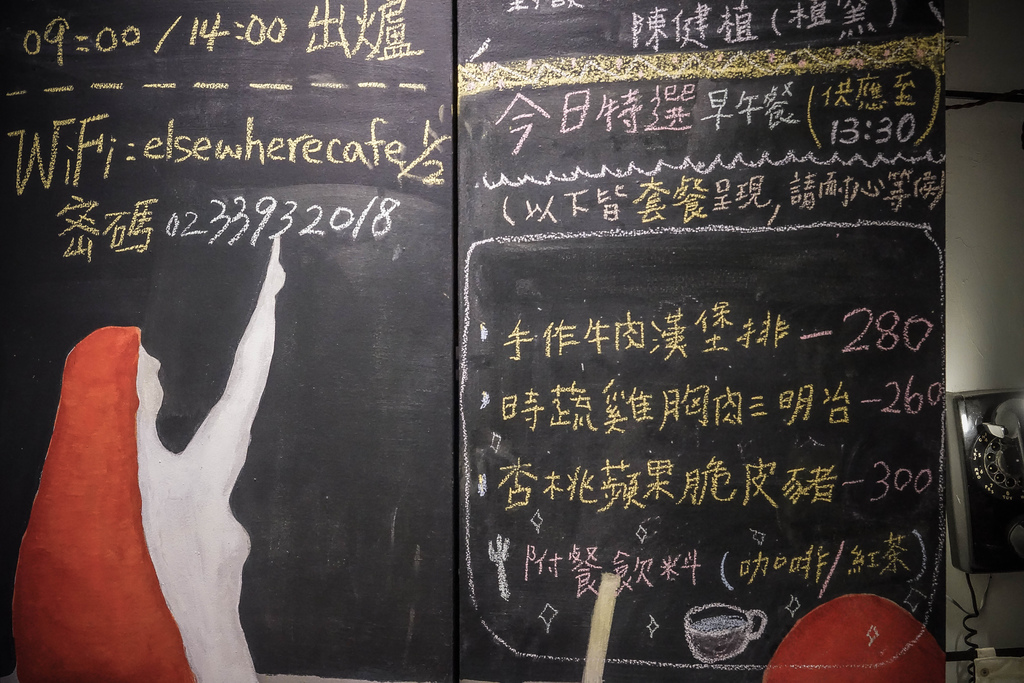 09:00/14:00 出爐
WiFi:elsewherecafe
密碼 0233932018
陳健植(植窯)
今日特選 早午餐(供應至
13:30)
(以下皆套餐呈現,請耐心等候
手作牛肉漢堡排-280
時蔬雞胸肉三明治-260
杏桃蘋果脆皮豬-300
附餐飲料(咖啡/紅茶)